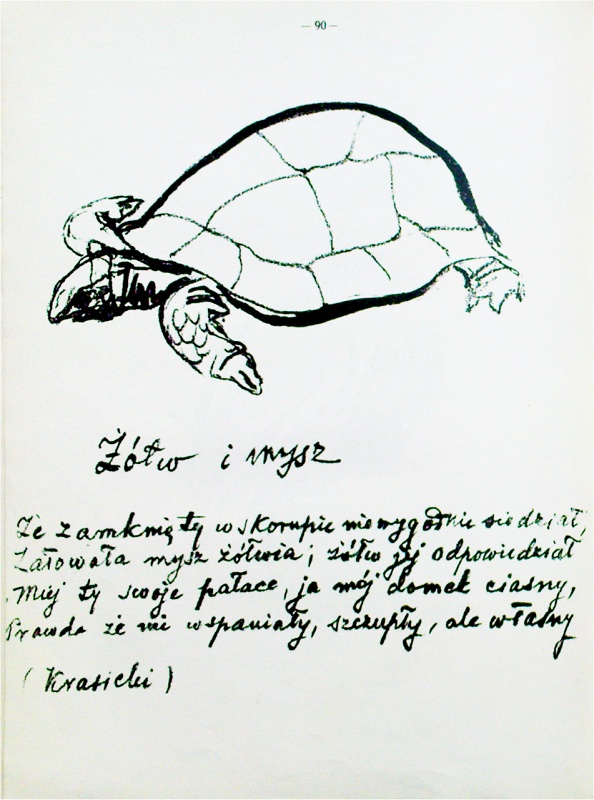 — 90 —
Żółw i mysz
Że zamknięty w skorupie niewygodnie siedział,
Żałowała mysz żółwia; żółw jej odpowiedział
Miej ty swoje pałace, ja mój domek ciasny,
Prawda że nie wspaniały, szczupły, ale własny
(Krasicki)